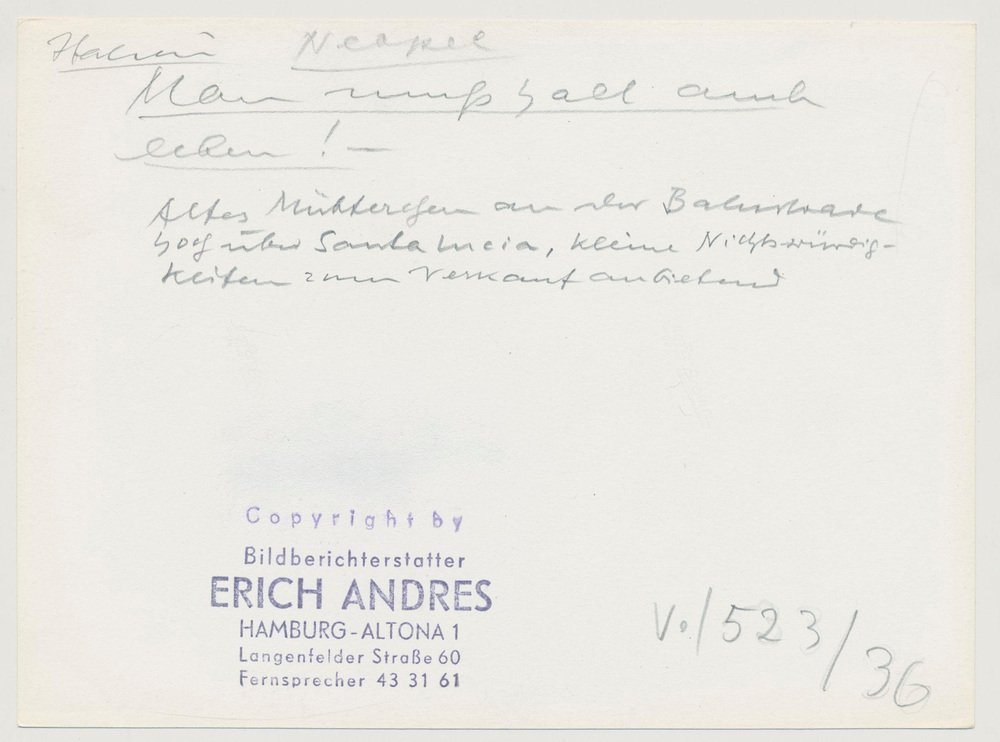 Italien Neapel
Man muß halt auch
leben! –
Altes Mütterchen an der Balustrade
hoch über Santa Lucia, kleine Nichtswürdig-
keiten zum Verkauf anbietend
Copyright by
Bildberichterstatter
ERICH ANDRES
HAMBURG-ALTONA 1
Langenfelder Straße 60
Fernsprecher 43 31 61
V./523/36